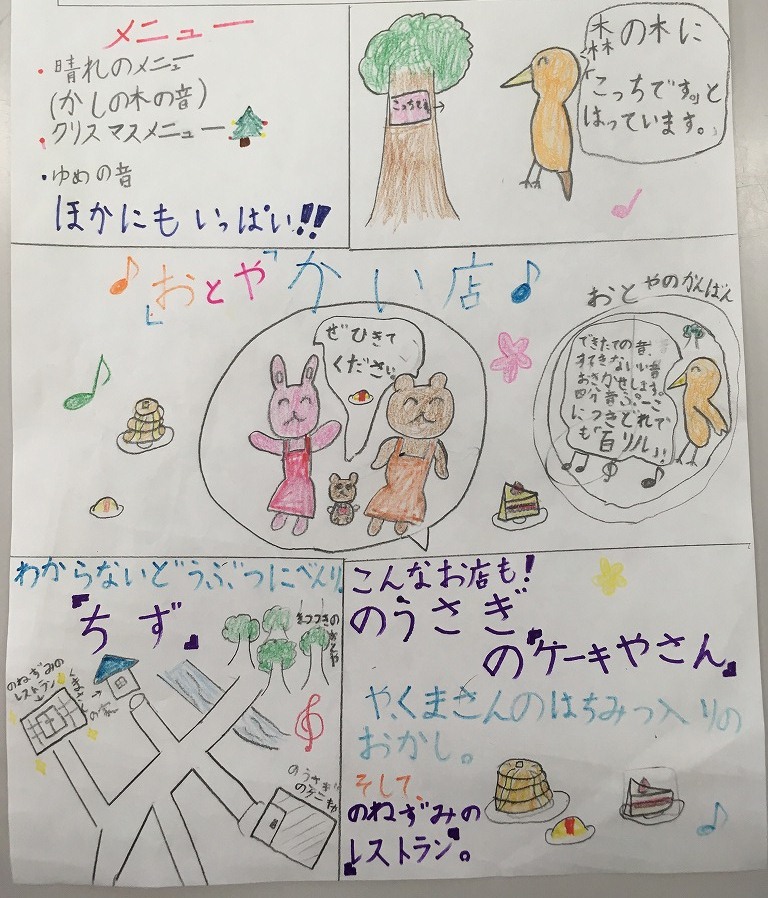 メニュー
・晴れのメニュー
(かしの木の音)
・クリスマスメニュー
・ゆめの音
ほかにもいっぱい!!
こっちです。
森の木に
「こっちです。」と
はっています。
「おとや」かい店
ぜひきて
ください。
おとやのかんばん
できたての音、
すてきないい音
おきかせします。
四分音ぷ一こ
につきどれで
も「百リル」!
わからないどうぶつにべんり
『ちず』
のねずみの
レストラン
くまさん
の家
きつつきの
おとや
のうさぎ
のケーキや
こんなお店も!
のうさぎ
の『ケーキやさん』
や、くまさんのはちみつ入りの
おかし。
そして、
のねずみの
『レストラン』。